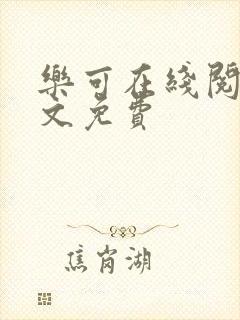 樂可在綫閱
文免費
焦岗湖